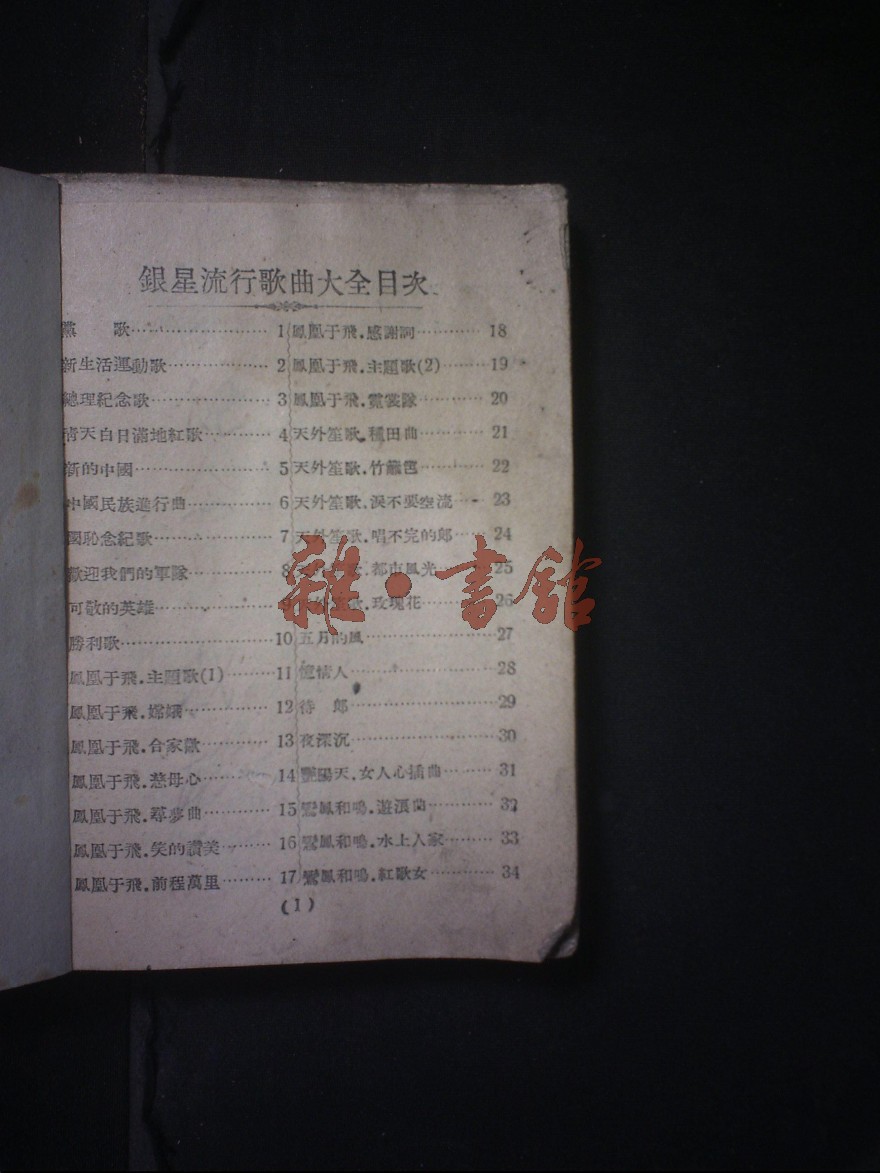 銀星流行歌曲大全目次
黨　歌………………… 1
新生活運動歌………… 2
總理紀念歌…………… 3
青天白日滿地紅歌……… 4
新的中國……………… 5
中國民族進行曲………… 6
國恥念紀歌…………… 7
歡迎我們的軍隊……… 8
可敬的英雄………… 9
勝利歌……………… 10
鳳凰于飛．主題歌(1)…… 11
鳳凰于飛．嫦娥……… 12
鳳凰于飛．合家歡……… 13
鳳凰于飛．慈母心……… 14
鳳凰于飛．尋夢曲……… 15
鳳凰于飛．笑的讚美…… 16
鳳凰于飛．前程萬里…… 17
鳳凰于飛．感謝詞……… 18
鳳凰于飛．主題歌(2)…… 19
鳳凰于飛．霓裳隊……… 20
天外笙歌．種田曲……… 21
天外笙歌．竹籬笆……… 22
天外笙歌．淚不要空流… 23
天外笙歌．唱不完的郎… 24
都市風光…… 25
外笙歌．玫瑰花……… 26
五月的風…………… 27
憶情人……………… 28
待　郎……………… 29
夜深沉……………… 30
艷陽天．女人心插曲…… 31
鸞鳳和鳴．遊溪曲……… 32
鸞鳳和鳴．水上人家…… 33
鸞鳳和鳴．紅歌女……… 34
(1)
雜・書館